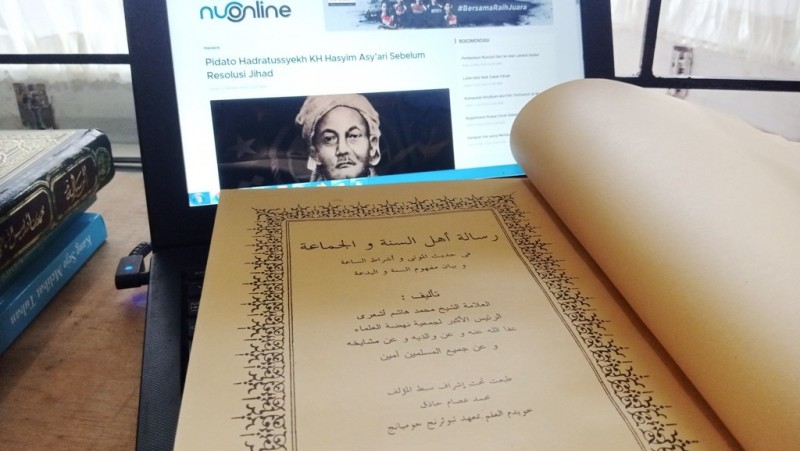 nuonline
#BersamaRaihJuara
Pidato Hadratussyekh KH Hasyim Asy'ari Sebelum
Resolusi Jihad
REKOMENDASI
رسالة أهل السنة و الجماعة
في حديث الموتى و أشراط الساعة
و بيان مفهوم السنة و البدعة
تأليف :
العلامة الشيخ محمد هاشم أشعرى
الرئيس الأكبر لجمعية نهضة العلماء
عفا الله عنه و عن والديه و عن مشايخه
و عن جميع المسلمين آمين
طبعت تحت إشراف سبط المؤلف
محمد عصام حاذق
خويدم العلم بمعهد تبوئرنج جومبانج
Kang Sejo Melihat Tuhan